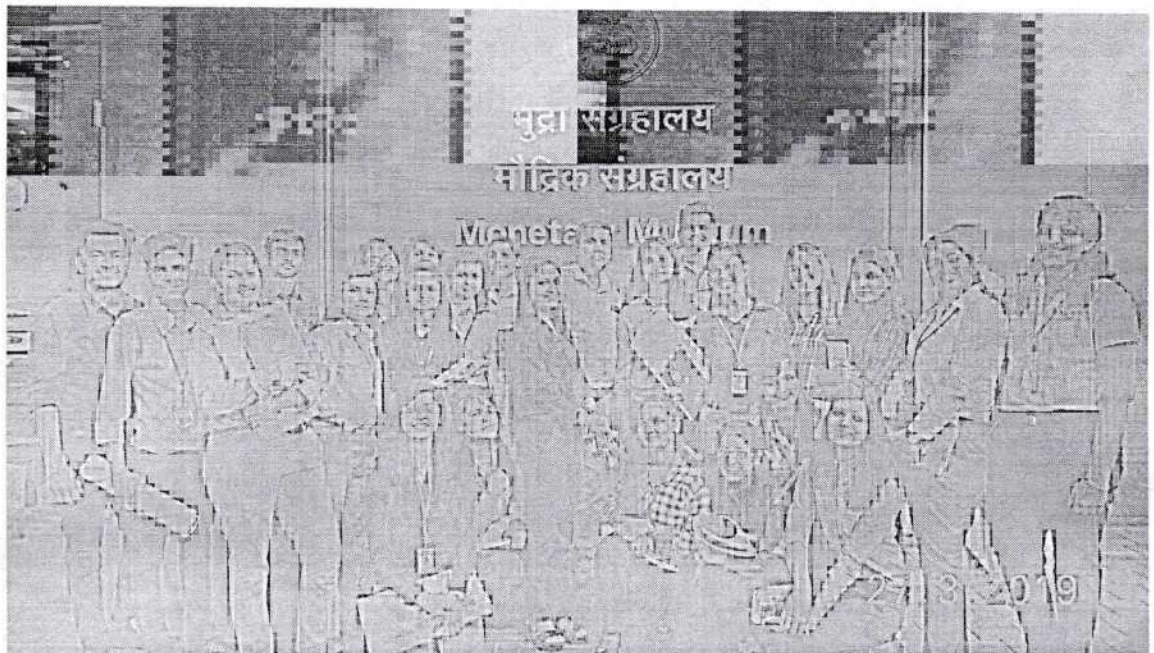 मुद्रा संग्रहालय
मौद्रिक संग्रहालय
Monetary Museum
3 2019